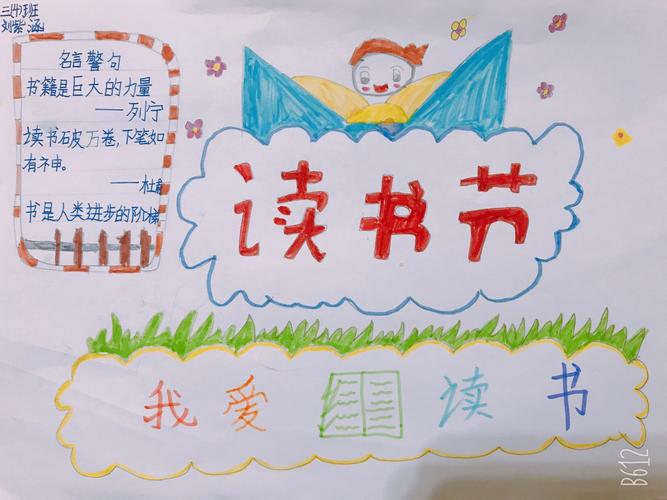 三(4)班
刘紫涵
名言警句
书籍是巨大的力量
——列宁
读书破万卷,下笔如
有神。
——杜甫
书是人类进步的阶梯
读书节
我爱读书
B612